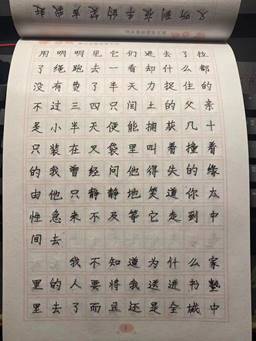 用明明见它们进去了拉
了绳跑去一看却什么都
没有费了半天力捉住的
不过三四只闰土的父亲
是小半天便能捕获几十
只装在叉袋里叫着撞着
的我曾经问他得失的缘
由他只静静地笑道你太
性急来不及等它走到中
间去
我不知道为什么家
里的人要将我送进书塾
里去了而且还是全城中